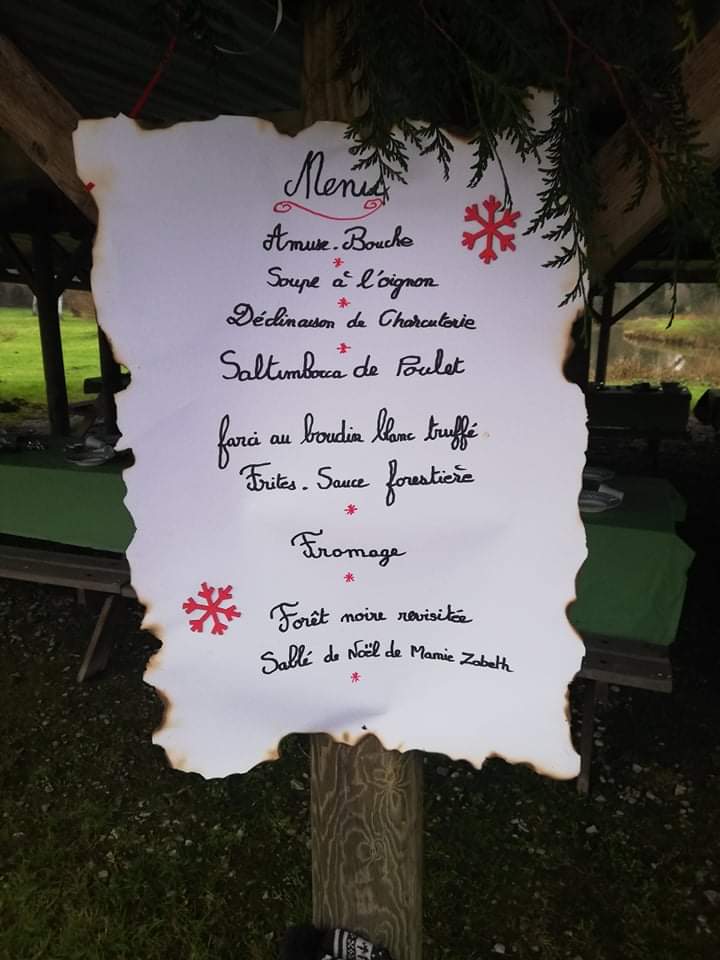 Menu
Amuse-Bouche
*
Soupe à l'oignon
*
Déclinaison de Charcuterie
*
Saltimbocca de Poulet
farci au boudin blanc truffé
Frites. Sauce forestière
*
Fromage
*
Forêt noire revisitée
Sablé de Noël de Mamie Zabeth
*